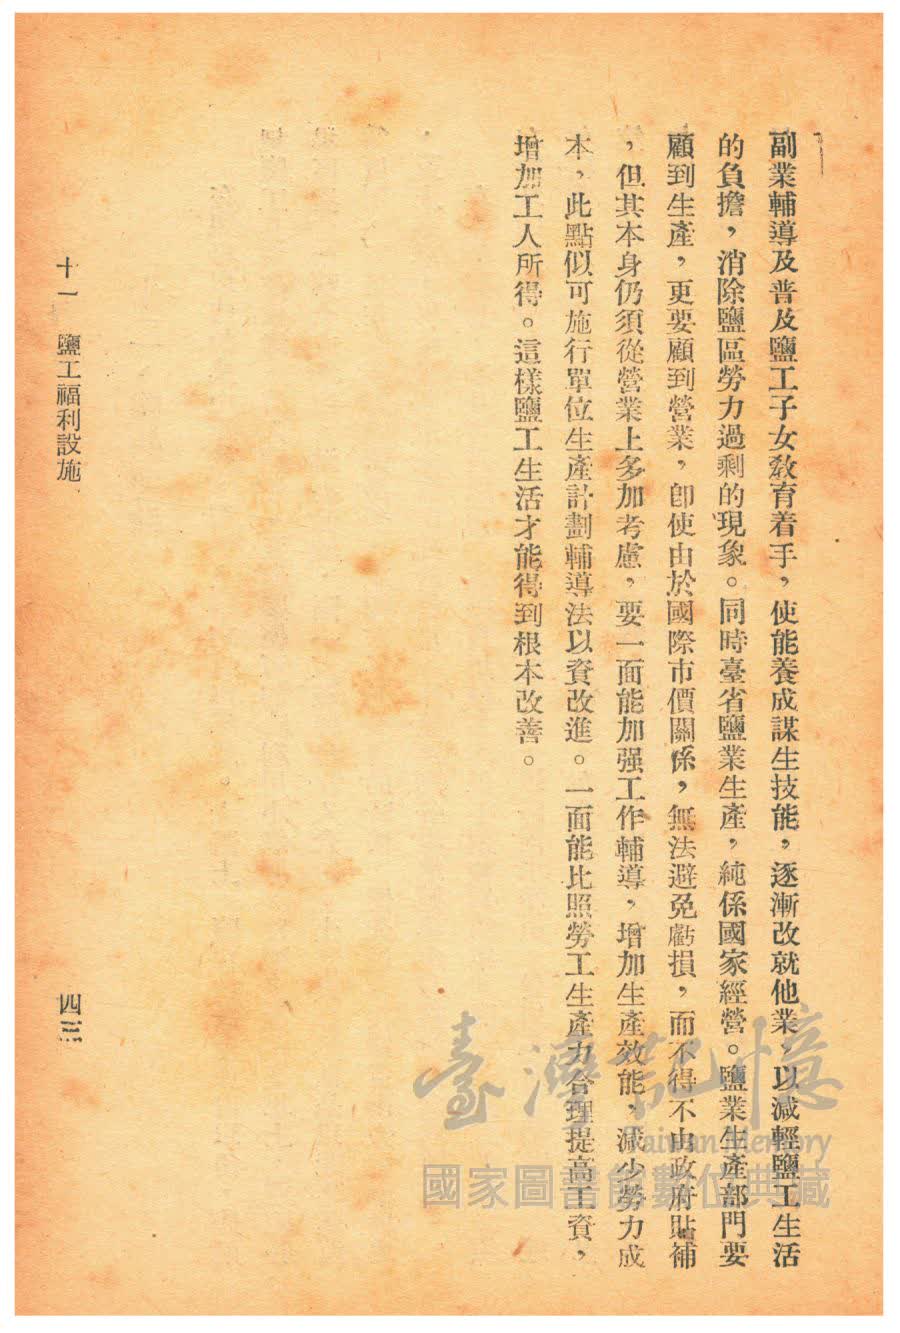 副業輔導及普及鹽工子女敎育着手，使能養成謀生技能，逐漸改就他業，以減輕鹽工生活
的負擔，消除鹽區勞力過剩的現象。同時臺省鹽業生產，純係國家經營。鹽業生產部門要
顧到生產，更要顧到營業，卽使由於國際市價關係，無法避免虧損，而不得不由政府貼補
，但其本身仍須從營業上多加考慮，要一面能加强工作輔導，增加生產效能，減少勞力成
本，此點似可施行單位生產計劃輔導法以資改進。一面能比照勞工生產力合理提高工資，
增加工人所得。這樣鹽工生活才能得到根本改善。
十一　鹽工福利設施
四三
臺灣記憶
Taiwan Memory
國家圖書館數位典藏